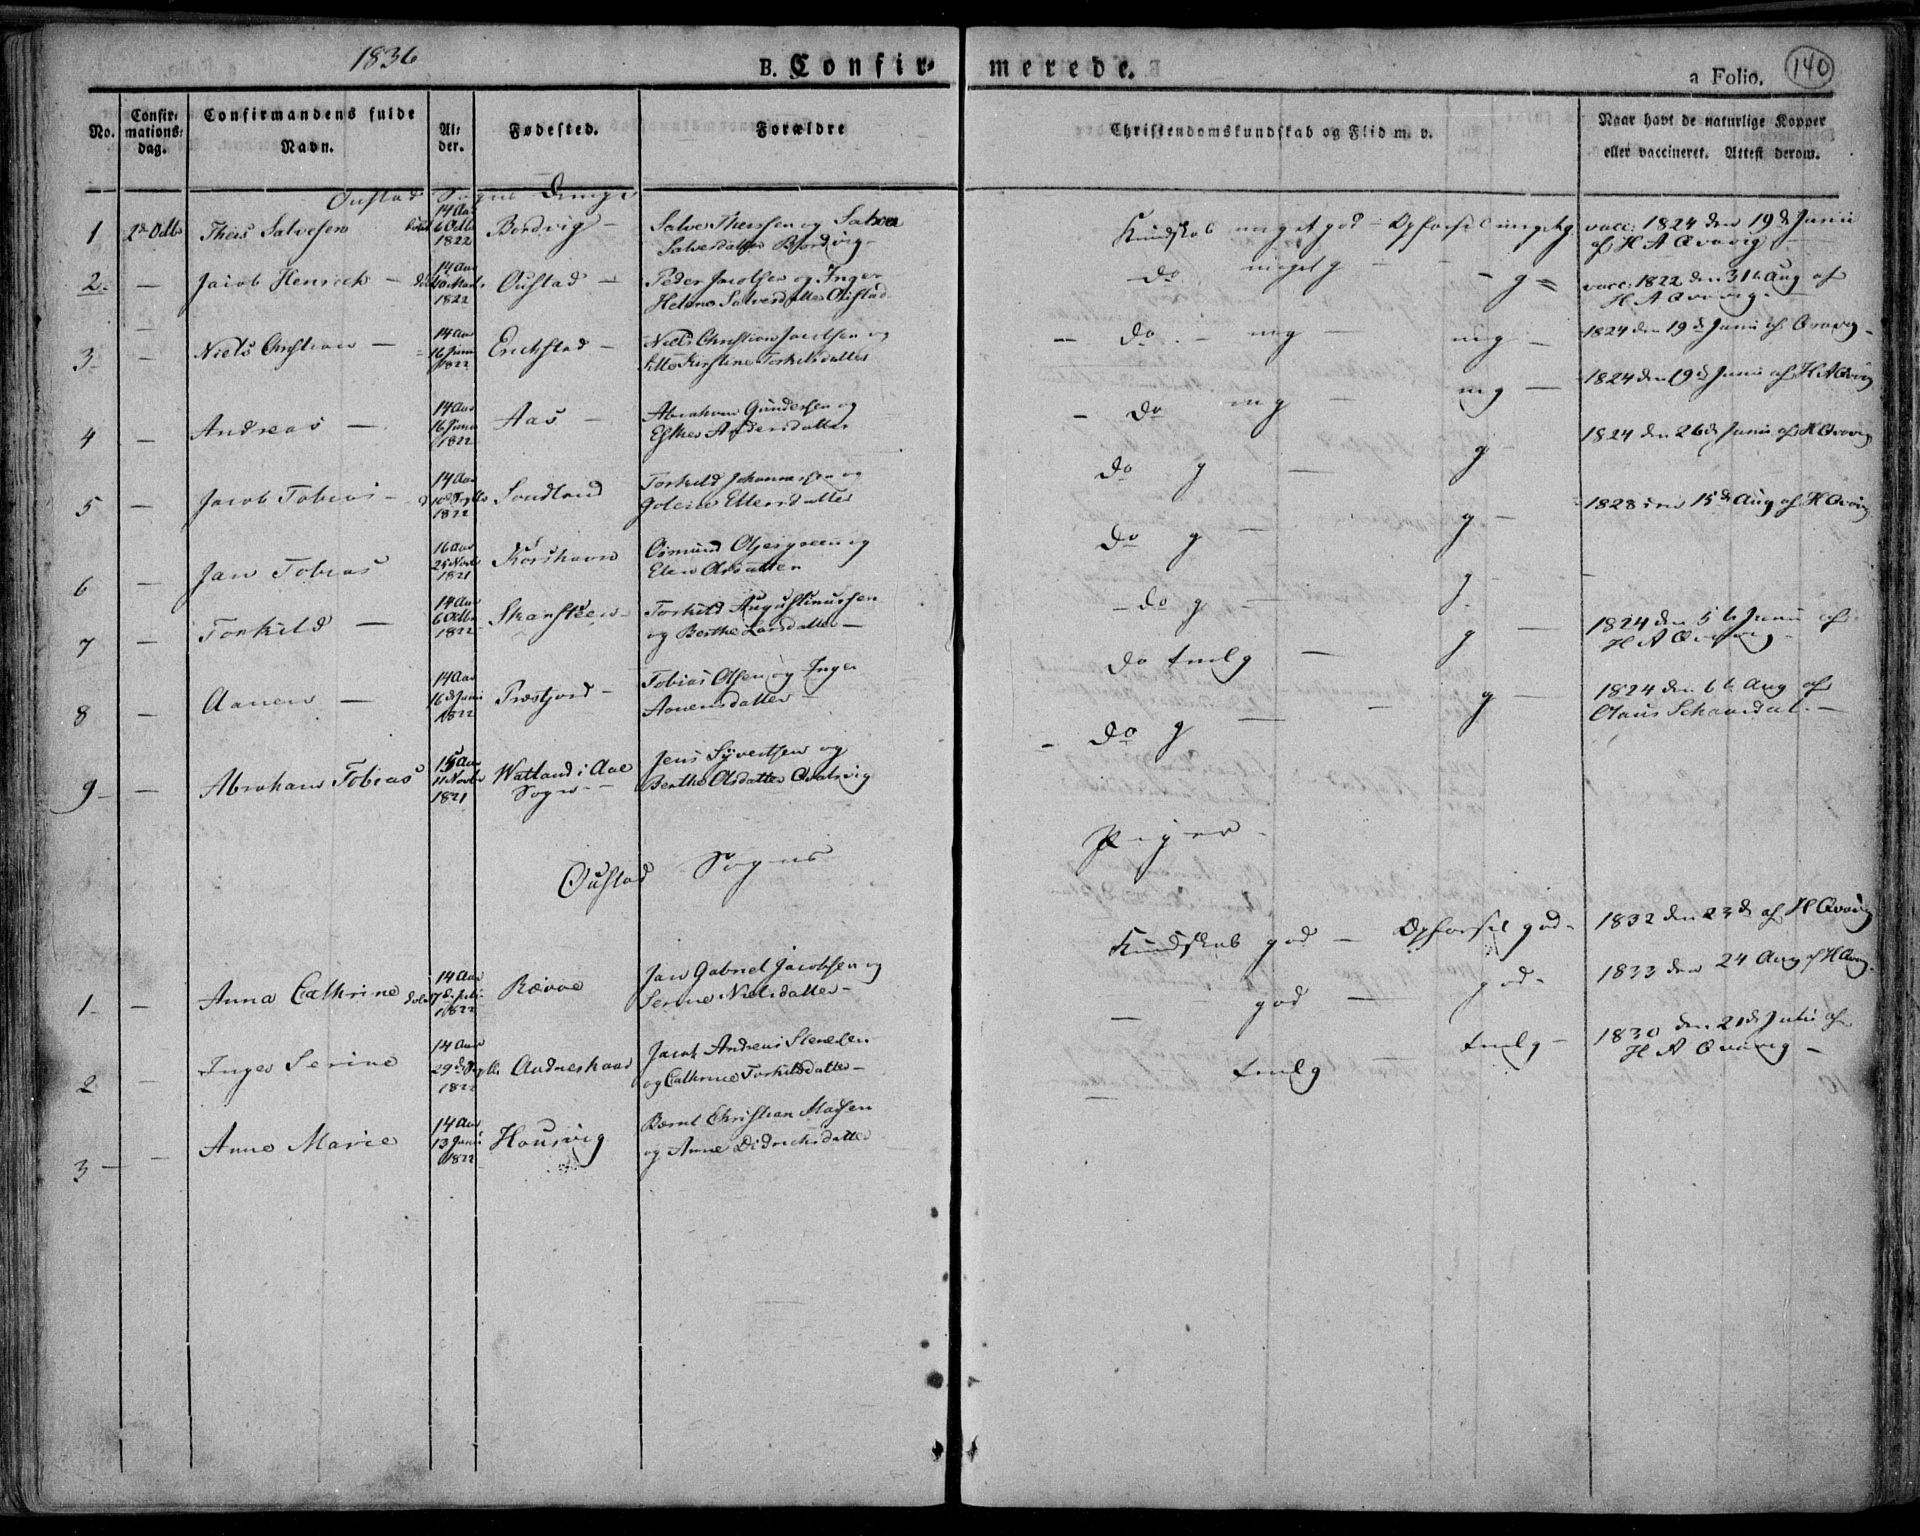 1836
B. Confir- merede.
a Folio. 140
No. Confirmations-dag. Confirmandens fulde Navn. Alder. Fødested. Forældre Christendomskundskab og Flid m. v. Naar havt de naturlige Kopper eller vaccineret. Attest derom.
Oustad Sogns Drenge
1 2d Octb Theis Salvesen døbt 14 Aar 6 Octb 1822 Bordvig - Salve Theissen og Salvesdatter Bordvig - Kundskab meget god - Opførsel meget g vacc: 1824 den 19d Junii af H A Qvavig
2 - Jacob Henrich - 14 Aar 1822 Oustad - Peder Jacobsen og Inger Helene Salvesdatter Oustad do meget g - g = vacc: 1822 den 31te Aug af H A Qvavig -
3 - Niels Christian - 14 Aar 16 Junii 1822 Erickstad - Niels Christian Jacobsen og Kirstine Torkilsdatter - do - mg - mg - 1824 den 19d Junii af Qvavig -
4 - Andreas - 14 Aar 16 Junii 1822 Aas - Abraham Gundersen og Esther Andersdatter - do mg - mg - 1824 den 19d Junii af H A Qvavig
5 - Jacob Tobias - 14 Aar 1822 Sondland Torkild Johannessen og Ellersdatter do g - g - 1824 den 26d Junii af H Qvavig
6 - Jan Tobias 16 Aar 25 Novb 1821 Korshavn Osmund og Elen Olsdatter do g - g - 1828 den 15d Aug af H Qvavig
7 - Torkild - 14 Aar 6 Octbr 1822 Skarsteen - Torkild Augustinussen og Berthe Larsdatter - - do g - g -
8 - Aanen - 14 Aar 16d Junii 1822 Præstjord - Tobias Olsen og Inger Aanensdatter - do temlg - g - 1824 den 5te Junii af H A Qvavig -
9 - Abraham Tobias 15 Aar 11 Novbr 1821 Watland i Aae Sogn - Jens Syvertsen og Berthe Olsdatter Qvalsvig - do g - - g - 1824 den 6te Aug af Claus -
Oustad Sogns Piger -
1 - Anna Cathrine døbt 14 Aar 7d Julii 1822 Rævøe Jan Gabriel Jacobsen og Serine Nielsdatter - Kundskab god - Opførsel god - 1832 den 23d af H Qvavig
2 - Inger Serine 14 Aar 29d 1822 Andneshaad Jacob Andreas Stensen og Cathrine Torkildsdatter - - god - god - 1833 den 24 Aug af H Qvavig
3 - - Anne Marie 14 Aar 13 Junii 1822 Housvig Bernt Christian Madsen og Anne Didrichsdatter - temlg - temlg - 1830 den 21d Julii af H A Qvavig -